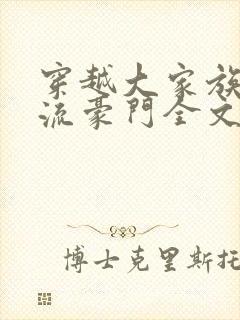 穿越大家族
流豪門全文
博士克里斯托